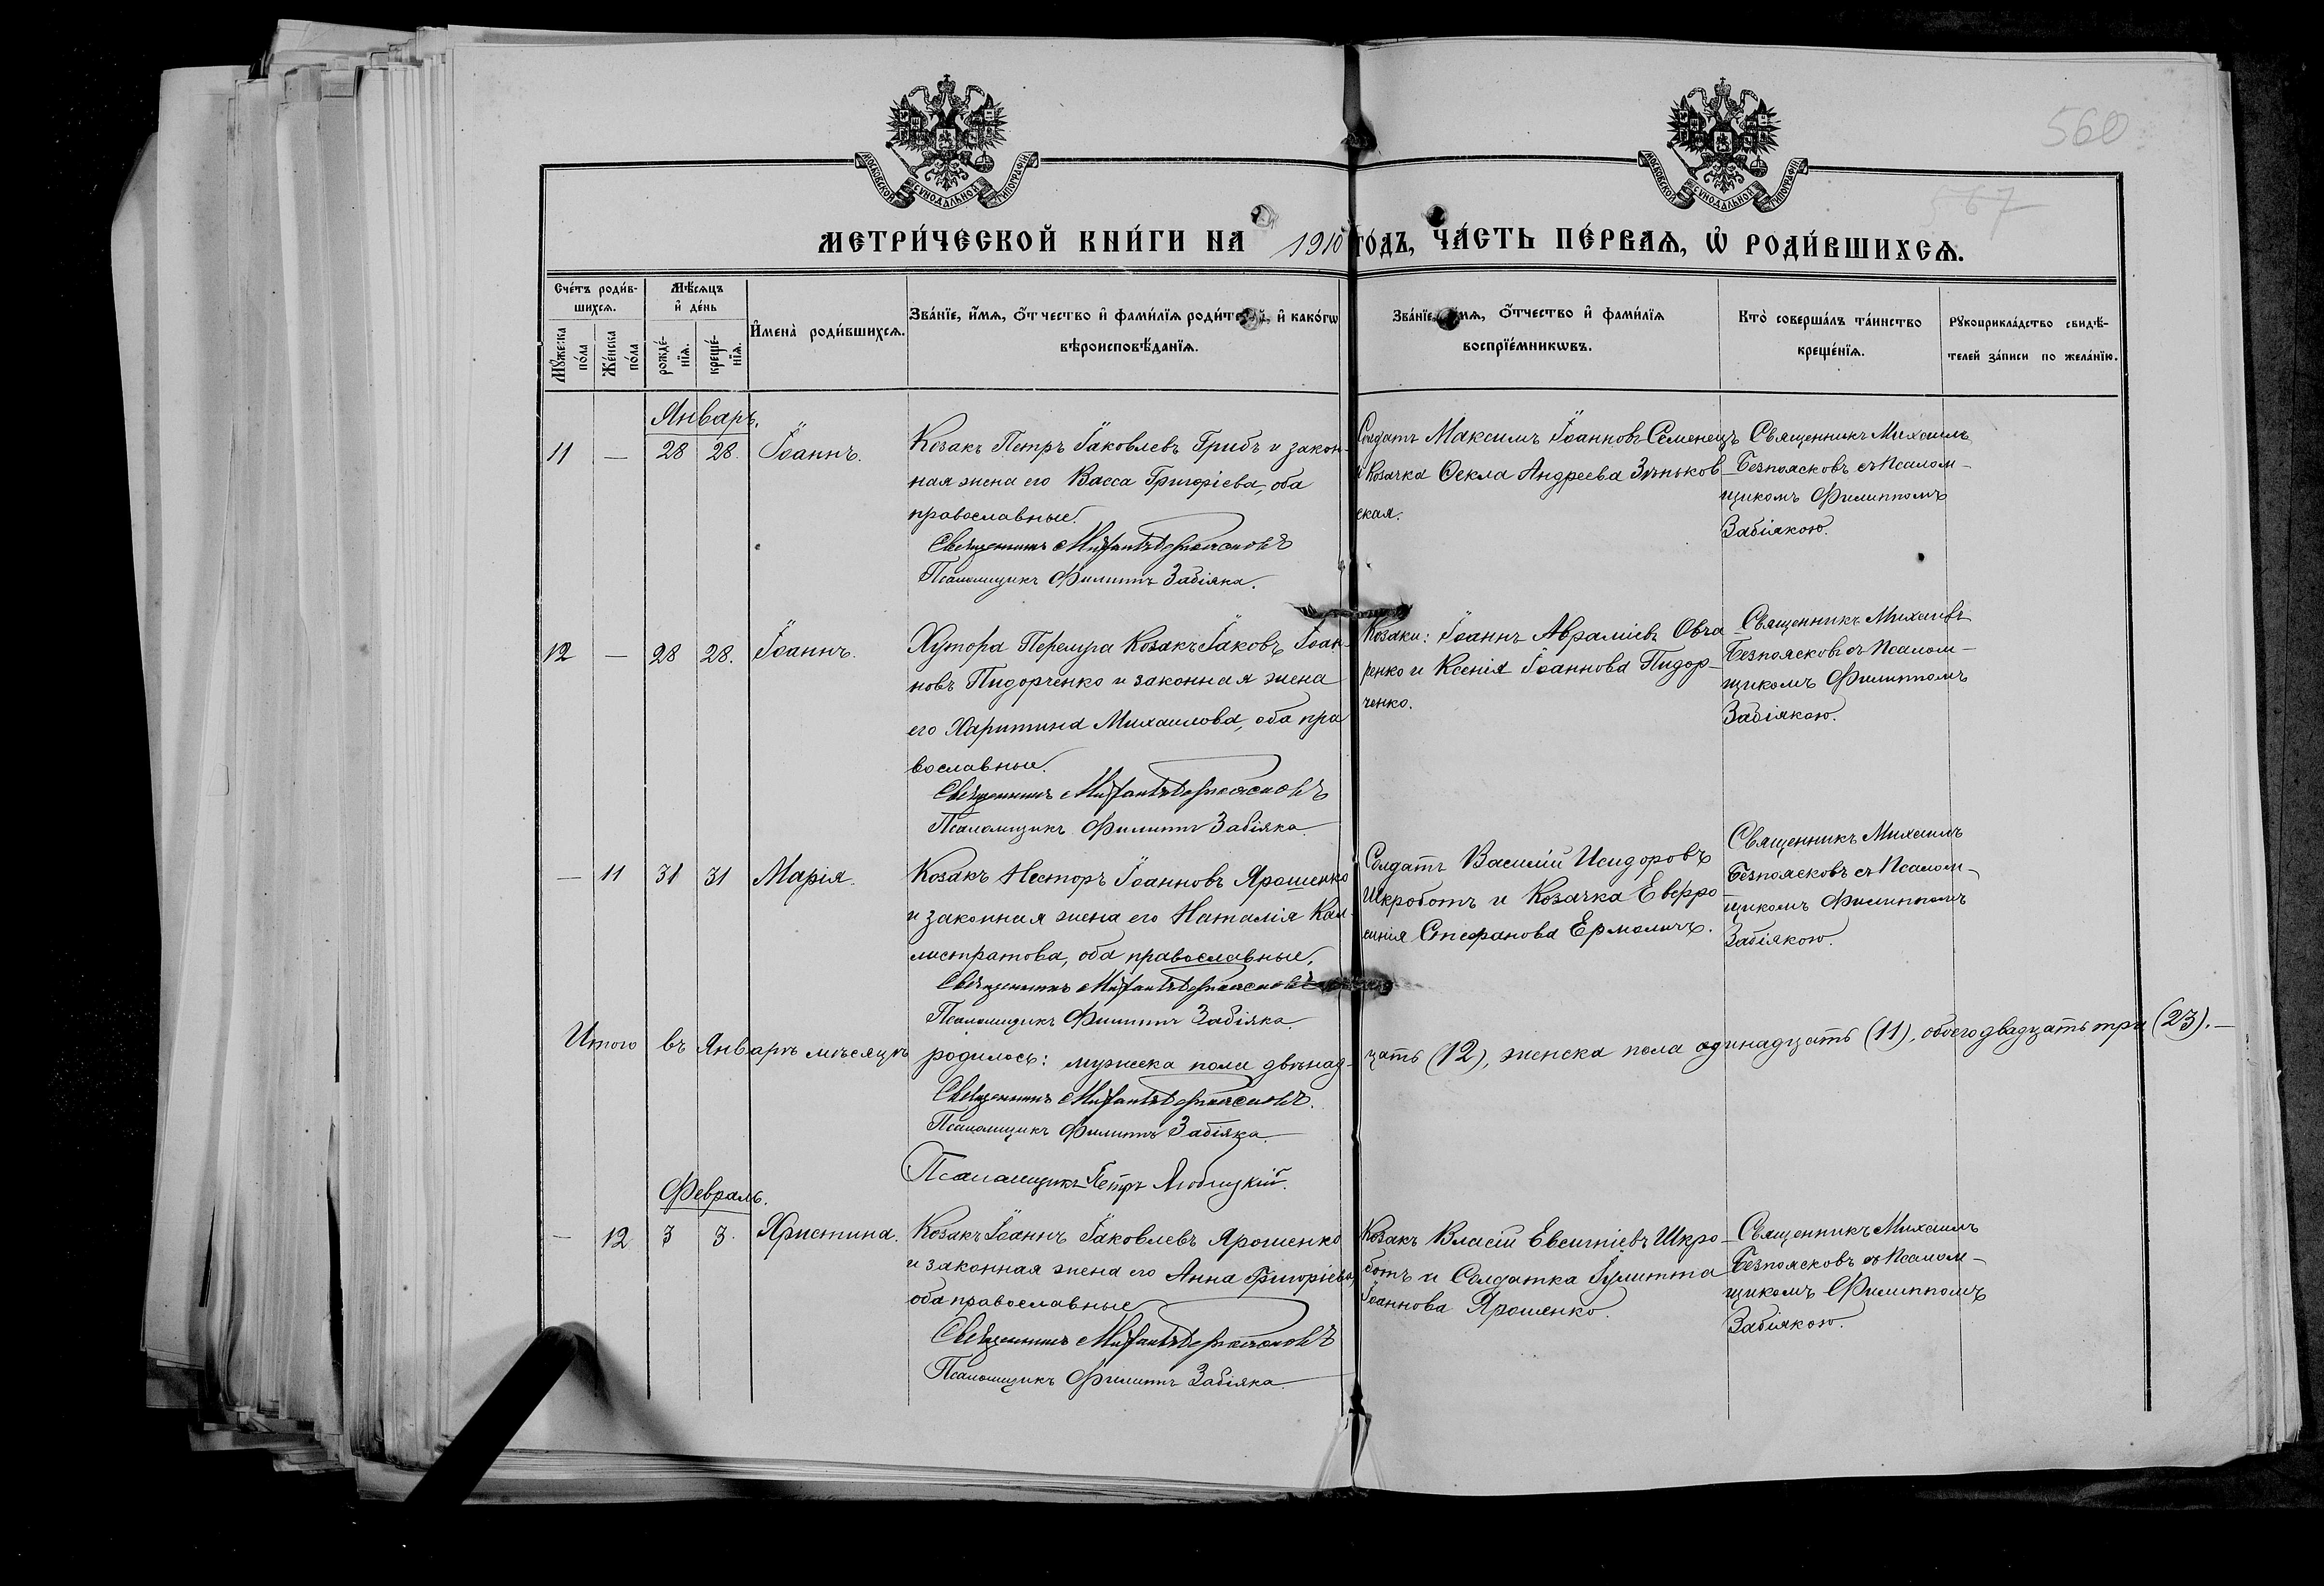 560
567
МОСКОВСКОЙ СѴНОДАЛЬНОЙ ТИПОГРАФІИ
МОСКОВСКОЙ СѴНОДАЛЬНОЙ ТИПОГРАФІИ
МЕТРИ́ЧЕСКОЙ КНИ́ГИ НА 1910 ГО́ДЪ, ЧА́СТЬ ПЕ́РВАѦ, Ѡ҆ РОДИ́ВШИХСѦ.
Сче́тъ роди́в-
шихсѧ.
Мꙋ́жеска
по́ла
Же́нска
по́ла
Мѣ́сѧцъ
и҆ де́нь
рожде́-
нїѧ.
креще́-
нїѧ.
И҆мена̀ роди́вшихсѧ.
Зва́нїе, и҆́мѧ, ѻ҆́тчество и҆ фами́лїѧ роди́телей, и҆ како́гѡ
вѣроисповѣ́данїѧ.
Зва́нїе, и҆́мѧ, ѻ҆́тчество и҆ фами́лїѧ
воспрїе́мникѡвъ.
Кто̀ соверша́лъ та́инство
креще́нїѧ.
Рꙋкоприкла́дство свидѣ́-
телей за́писи по жела́нїю.
Январь.
11 — 28 28. Іоаннъ.
Козакъ Петръ Іаковлевъ Грибъ и закон-
ная жена его Васса Григоріева, оба
православные.
Священникъ Михаилъ Безпоясковъ
Псаломщикъ Филиппъ Забіяка.
Солдатъ Максимъ Іоанновъ Семенецъ
и Козачка Ѳекла Андреева Зѣньков-
ская.
Священникъ Михаилъ
Безпоясковъ съ Псалом-
щикомъ Филиппомъ
Забіякою.
12 — 28 28. Іоаннъ.
Хутора Перелуга Козакъ Іаковъ Іоан-
новъ Пидорченко и законная жена
его Харитина Михаилова, оба пра
вославные.
Священникъ Михаилъ Безпоясковъ
Псаломщикъ Филиппъ Забіяка.
Козаки: Іоаннъ Авраміевъ Овча
ренко и Ксенія Іоаннова Пидор-
ченко.
Священникъ Михаилъ
Безпоясковъ съ Псалом-
щикомъ Филиппомъ
Забіякою.
— 11 31 31 Марія.
Козакъ Несторъ Іоанновъ Ярошенко
и законная жена его Наталія Кал-
листратова, оба православные.
Священникъ Михаилъ Безпоясковъ
Псаломщикъ Филиппъ Забіяка.
Солдатъ Василій Исидоровъ
Шкроботъ и Козачка Евфро
синія Стефанова Ермоличъ.
Священникъ Михаилъ
Безпоясковъ съ Псалом-
щикомъ Филиппомъ
Забіякою.
Итого въ Январѣ мѣсяцѣ родилось: мужеска пола двѣнад-цать (12), женска пола одинадцать (11), обоего двадцать три (23).—
Священникъ Михаилъ Безпоясковъ.
Псаломщикъ Филиппъ Забіяка.
Псаломщикъ Петръ Любицкій.
Февраль.
— 12 3 3. Христина.
Козакъ Іоаннъ Іаковлевъ Ярошенко
и законная жена его Анна Григоріева,
оба православные
Священникъ Михаилъ Безпоясковъ
Псаломщикъ Филиппъ Забіяка.
Козакъ Власій Евсигніевъ Шкро-
ботъ и Солдатка Іулитта
Іоаннова Ярошенко.
Священникъ Михаилъ
Безпоясковъ съ Псалом-
щикомъ Филиппомъ
Забіякою.